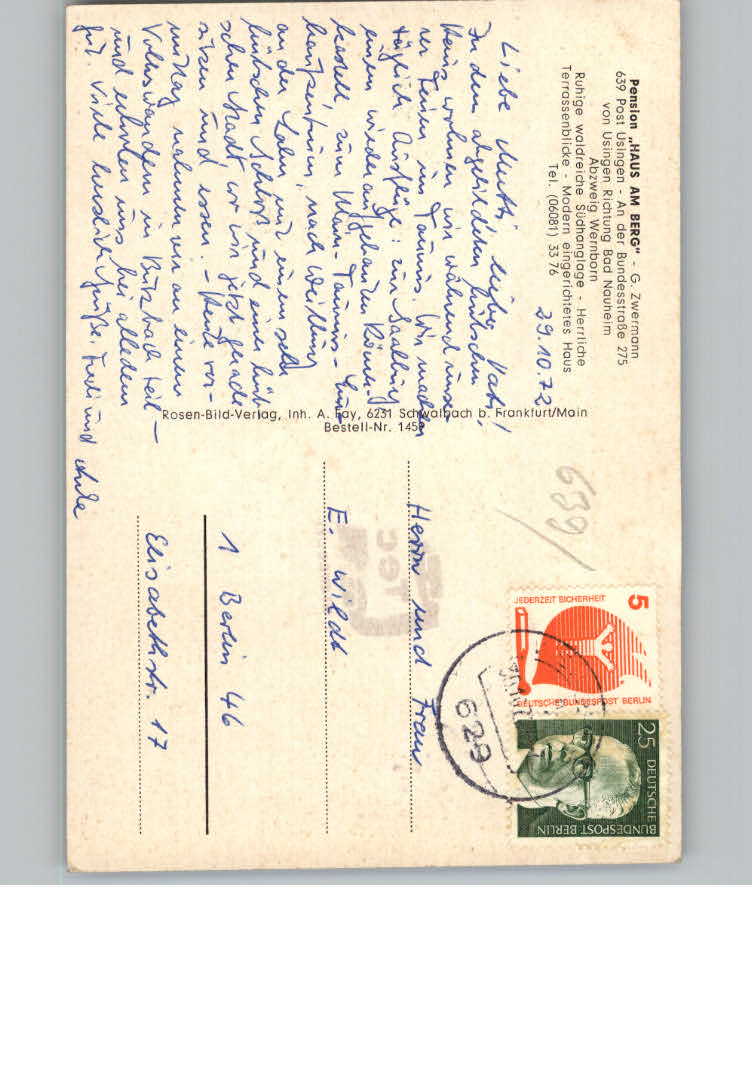 Pension „HAUS AM BERG“ - G. Zwermann
639 Post Usingen - An der Bundesstraße 275
von Usingen Richtung Bad Nauheim
Abzweig Wernborn
Ruhige waldreiche Südhanglage - Herrliche
Terrassenblicke - Modern eingerichtetes Haus
Tel. (06081) 33 76
29.10.72
Liebe Mutti, lieber Vati!
In dem abgebildeten hübschen
Haus wohnen wir während unse-
rer Ferien im Taunus. Wir machen
täglich Ausflüge: zur Saalburg
einem wiederaufgebauten Römer-
kastell, zum Main-Taunus-Ein-
kaufszentrum, nach Weilburg
an der Lahn mit einem sehr
hübschen Schloß und einer hüb-
schen Stadt, wo wir jetzt gerade
sitzen und essen. - Heute vor-
mittag nahmen wir an einem
Volkswandern in Butzbach teil -
und erholen uns bei alledem
gut. Viele herzliche Grüße, und
Rosen-Bild-Verlag, Inh. A. Fay, 6231 Schwalbach b. Frankfurt/Main
Bestell-Nr. 145
639
JEDERZEIT SICHERHEIT
5
DEUTSCHE BUNDESPOST BERLIN
25 DEUTSCHE
BUNDESPOST BERLIN
629
Herrn und Frau
E. Wildt
1 Berlin 46
Elisabethstr. 17